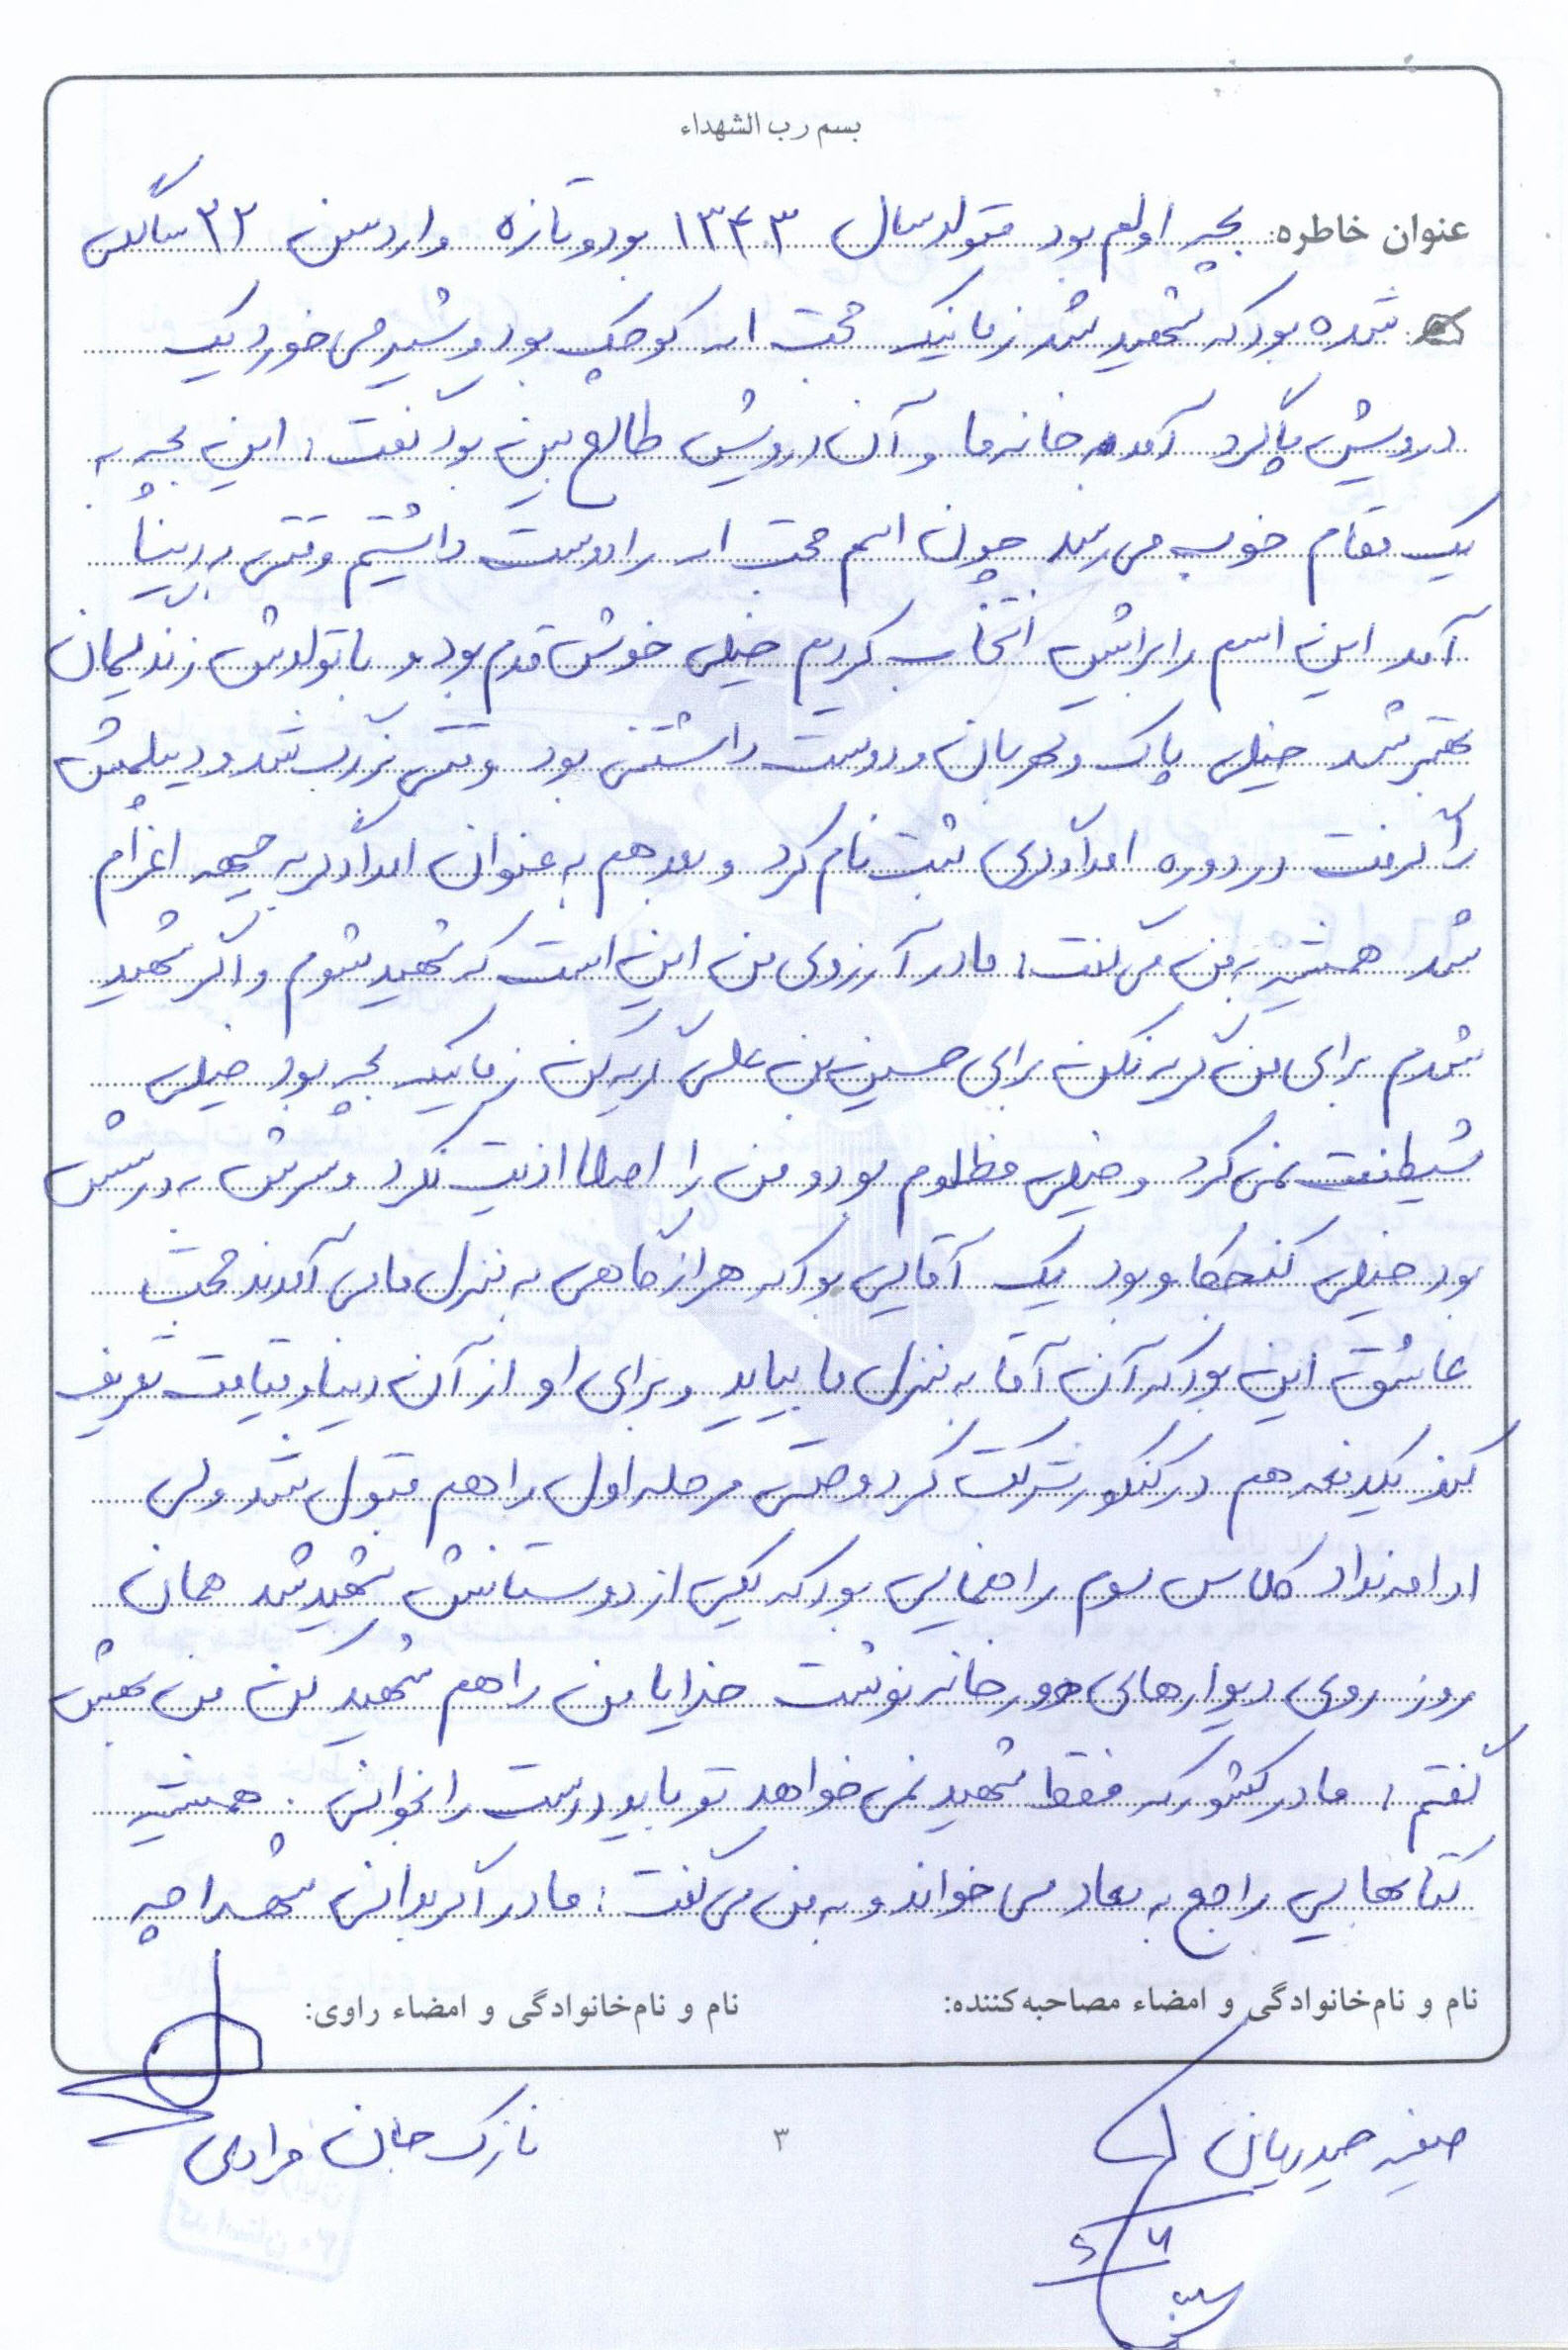 بسم رب الشهداء
عنوان خاطره: بچه اولم بود متولد سال ۱۳۴۳ بود و تازه وارد سن ۲۲ سالگی
شده بود که شهید شد زمانیکه محبت اله کوچک بود و شیر می خورد یک
درویش پاگرد آمد به خانه ما و آن درویش طالع بین بود گفت: این بچه به
یک مقام خوب می رسد چون اسم محبت اله را دوست داشتیم وقتی به دنیا
آمد این اسم را برایش انتخاب کردیم خیلی خوش قدم بود و با تولدش زندگیمان
بهتر شد خیلی پاک و مهربان و دوست داشتنی بود وقتی بزرگ شد و دیپلمش
را گرفت در دوره امدادگری ثبت نام کرد و بعد هم به عنوان امدادگر به جبهه اعزام
شد همیشه به من می گفت: مادر آرزوی من این است که شهید شوم و اگر شهید
شدم برای من گریه نکن برای حسین بن علی گریه کن زمانیکه بچه بود خیلی
شیطنت نمی کرد و خیلی مظلوم بود و من را اصلا اذیت نکرد و سرش به درسش
بود خیلی کنجکاو بود یک آقایی بود که هر از گاهی به منزل ما می آمدند محبت
عاشق این بود که آن آقا به منزل ما بیاید و برای او از آن دنیا و قیامت تعریف
کند یکدفعه هم در کنکور شرکت کرد و حتی مرحله اول را هم قبول شد ولی
ادامه نداد کلاس سوم راهنمایی بود که یکی از دوستانش شهید شد همان
روز روی دیوارهای خانه نوشت خدایا من را هم شهید کن من بهش
گفتم: مادر کشور که فقط شهید نمی خواهد تو باید درست را بخوانی. همیشه
کتابهایی راجع به معاد می خواند و به من می گفت: مادر اگر بدانی شهدا چه
نام و نام‌خانوادگی و امضاء مصاحبه‌کننده: نام و نام‌خانوادگی و امضاء راوی:
صفیه حیدریان نازک جان مرادی
۳